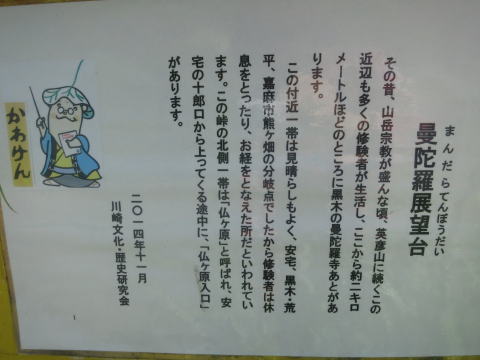 まんだらてんぼうだい
曼陀羅展望台
その昔、山岳宗教が盛んな頃、英彦山に続くこの
近辺も多くの修験者が生活し、ここから約二キロ
メートルほどのところに黒木の曼陀羅寺あとがあ
ります。
この付近一帯は見晴らしもよく、安宅、黒木・荒
平、嘉麻市熊ヶ畑の分岐点でしたから修験者は休
息をとったり、お経をとなえた所だといわれてい
ます。この峠の北側一帯は「仏ヶ原」と呼ばれ、安
宅の十郎口から上ってくる途中に、「仏ヶ原入口」
があります。
二〇一四年十一月
川崎文化・歴史研究会
かわけん
1